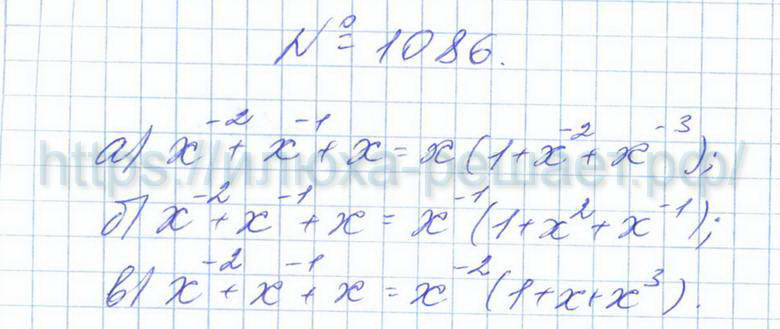 № 1086.
а) x⁻² + x⁻¹ + x = x (1 + x⁻² + x⁻³);
https://илюха-решает.рф/
б) x⁻² + x⁻¹ + x = x⁻¹ (1 + x² + x⁻¹);
в) x⁻² + x⁻¹ + x = x⁻² (1 + x + x³).